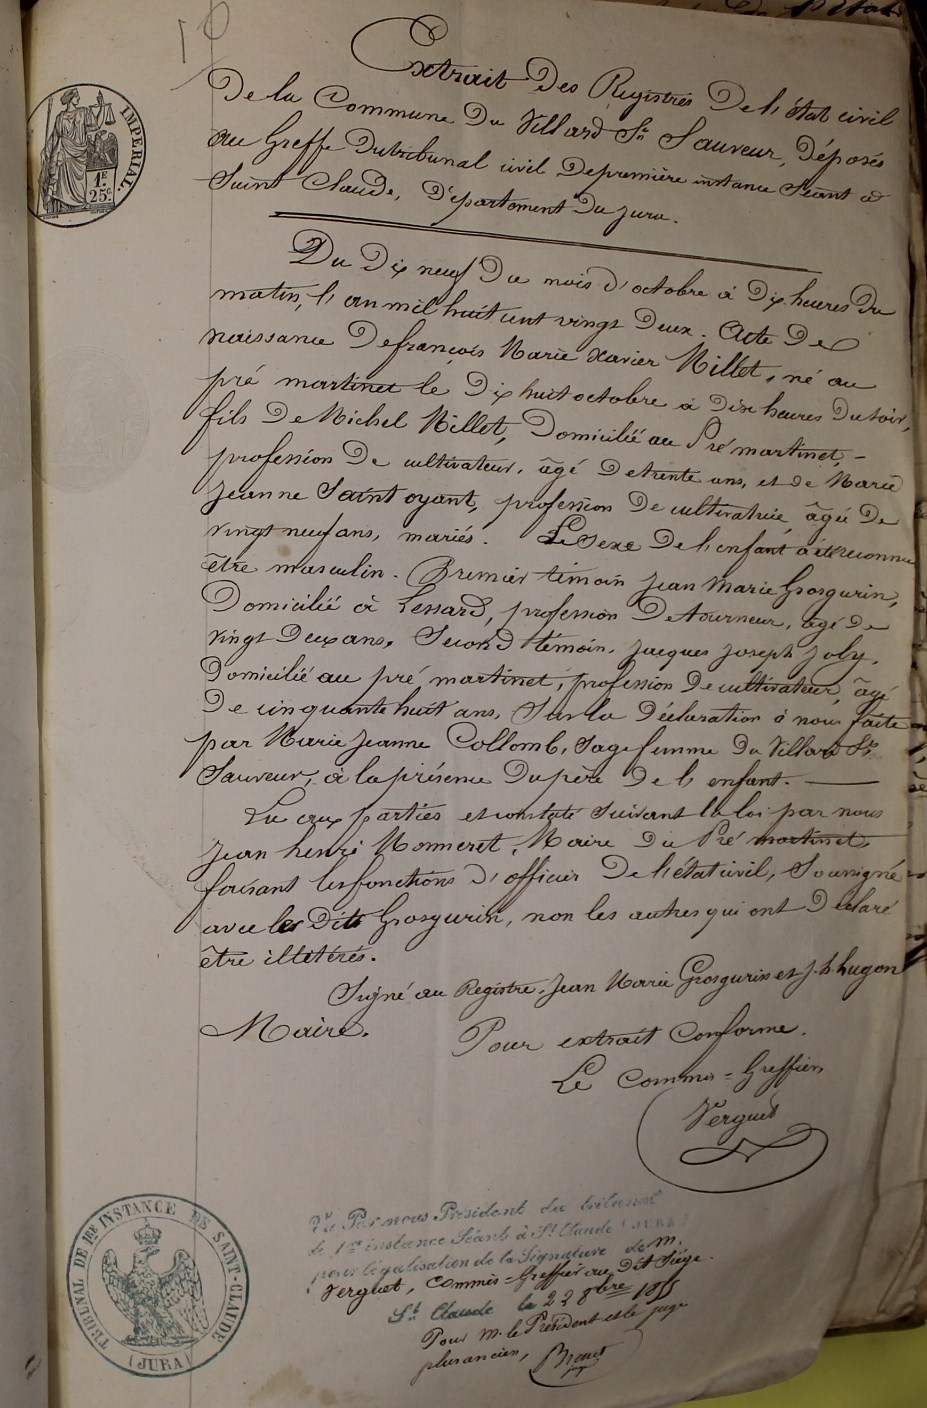 Extrait Des Registres De l'état civil
De la Commune Du Villard St Sauveur, Déposés
au Greffe Du tribunal civil De première instance séant à
Saint Claude, Département Du jura.
IMPERIAL.
1F
25c
Du Dix neuf Du mois d'octobre à Dix heures Du
matin, l'an mil huit cent vingt Deux. Acte De
naissance De françois Marie Xavier Millet, né au
pré martinet le Dix huit octobre à Dix heures Du soir,
fils De Michel Millet, Domicilié au Pré martinet, -
profession De cultivateur, âgé De trente ans, et De Marie
Jeanne Saint oyant, profession De cultivatrice, âgée De
vingt neuf ans, mariés. Le sexe De l'enfant a été reconnu
être masculin. Premier témoin Jean Marie Grosgurin,
Domicilié à Lessard, profession De tourneur, âgé De
vingt Deux ans. Second témoin, jacques joseph joly,
Domicilié au pré martinet, profession De cultivateur, âgé
De cinquante huit ans, Sur la Déclaration à nous faite
par Marie Jeanne Collomb, Sage femme Du Villard St
Sauveur, à la présence Du père De l'enfant.
Lu aux parties et constaté suivant la loi par nous
Jean henri Monneret, Maire Du Pré martinet,
faisant les fonctions d'officier De l'état civil, Soussigné
avec les Dits Grosgurin, non les autres qui ont Déclaré
être illitérés.
Signé au Registre, Jean Marie Grosgurin et J. h hugon
Maire.
Pour extrait Conforme.
Le Commis = Greffier
Verguet
Vu Par nous President du tribunal
de 1re instance Séant à St Claude (JURA)
pour légalisation de la Signature de M.
Verguet, Commis = Greffier au Dit Siège.
St Claude le 22 8bre
Pour M. le Président et le juge
plus ancien,
TRIBUNAL DE 1RE INSTANCE DE SAINT-CLAUDE
(JURA)